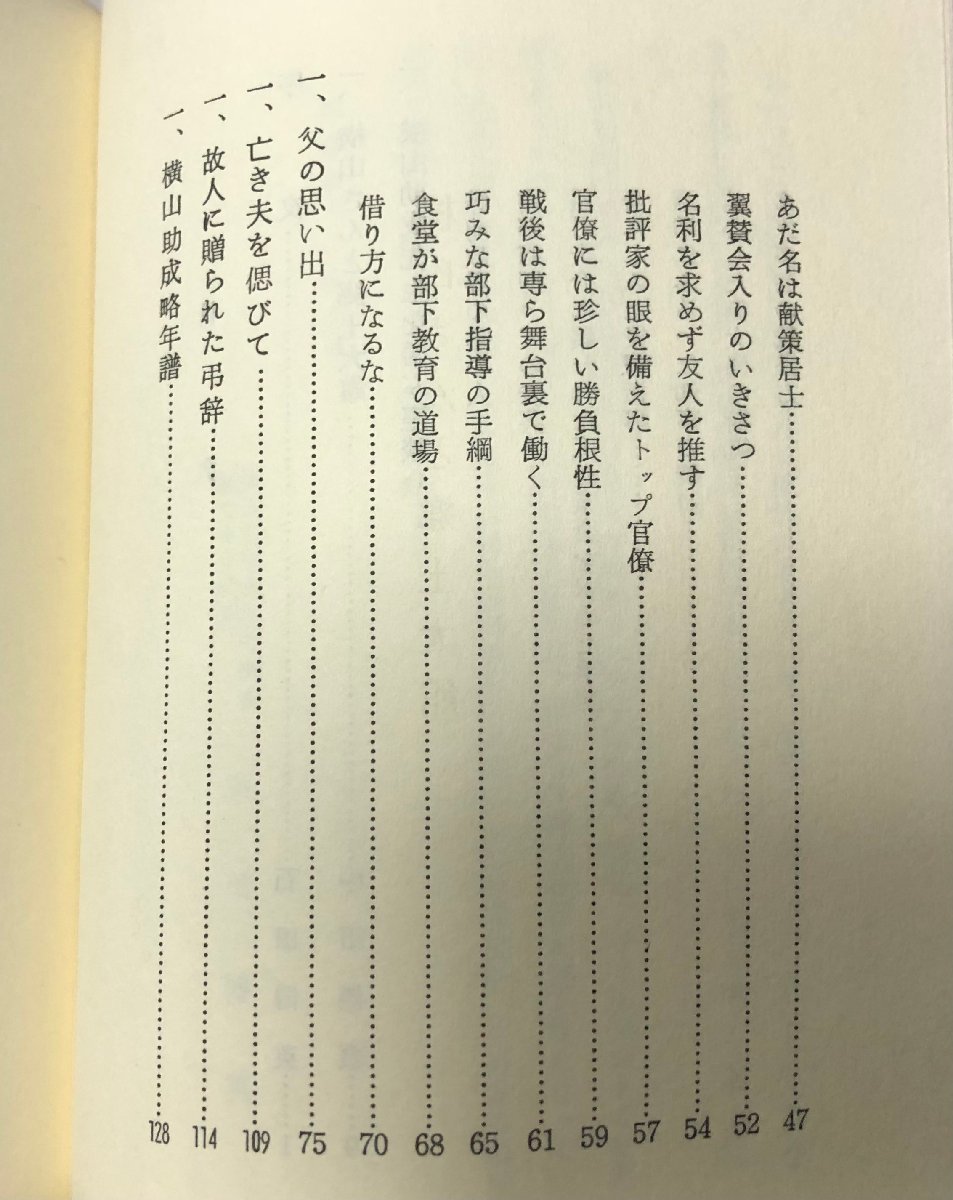 あだ名は献策居士……………47
翼賛会入りのいきさつ……………52
名利を求めず友人を推す……………54
批評家の眼を備えたトップ官僚……………57
官僚には珍しい勝負根性……………59
戦後は専ら舞台裏で働く……………61
巧みな部下指導の手綱……………65
食堂が部下教育の道場……………68
借り方になるな……………70
一、父の思い出……………75
一、亡き夫を偲びて……………109
一、故人に贈られた弔辞……………114
一、横山助成略年譜……………128